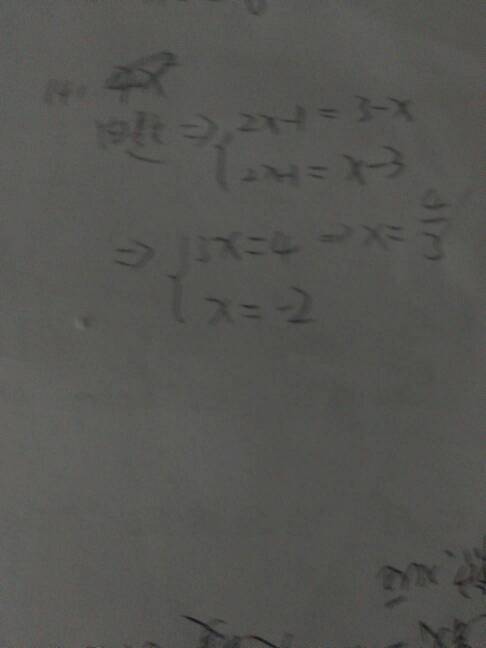 14.
⇒ { 2x-1 = 3-x
2x-1 = x-3
⇒ { 3x = 4 ⇒ x = 4/3
x = -2